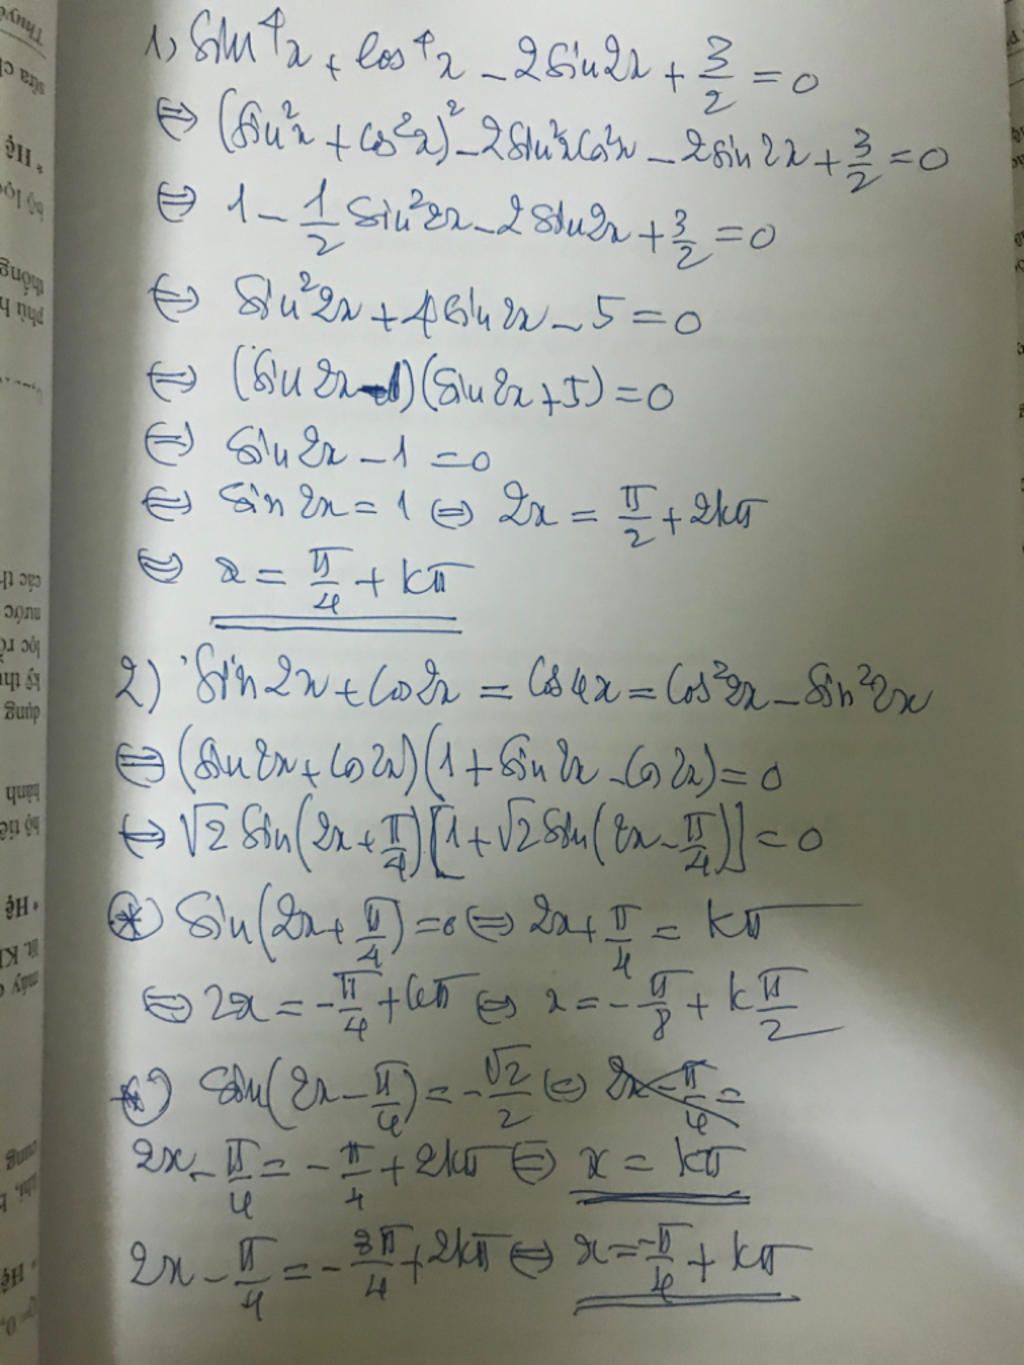 1) sin⁴x + cos⁴x - 2sin2x + 3/2 = 0
⇔ (sin²x + cos²x)² - 2sin²xcos²x - 2sin2x + 3/2 = 0
⇔ 1 - 1/2 sin²2x - 2sin2x + 3/2 = 0
⇔ sin²2x + 4sin2x - 5 = 0
⇔ (sin2x - 1)(sin2x + 5) = 0
⇔ sin2x - 1 = 0
⇔ sin2x = 1 ⇔ 2x = π/2 + 2kπ
⇔ x = π/4 + kπ
2) sin2x + cos2x = cos4x = cos²2x - sin²2x
⇔ (sin2x + cos2x)(1 + sin2x - cos2x) = 0
⇔ √2 sin(2x + π/4)[1 + √2 sin(2x - π/4)] = 0
*) sin(2x + π/4) = 0 ⇔ 2x + π/4 = kπ
⇔ 2x = -π/4 + kπ ⇔ x = -π/8 + kπ/2
*) sin(2x - π/4) = -√2/2 ⇔ 2x - π/4 =
2x - π/4 = -π/4 + 2kπ ⇔ x = kπ
2x - π/4 = -3π/4 + 2kπ ⇔ x = -π/4 + kπ
* Hệ
bộ lọc
thống
phù h
các th
nước
kỹ th
dụng
hành
bộ tiê
* Hệ
máy